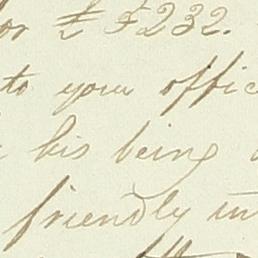 or £ $232.
to your offic
his being
friendly in